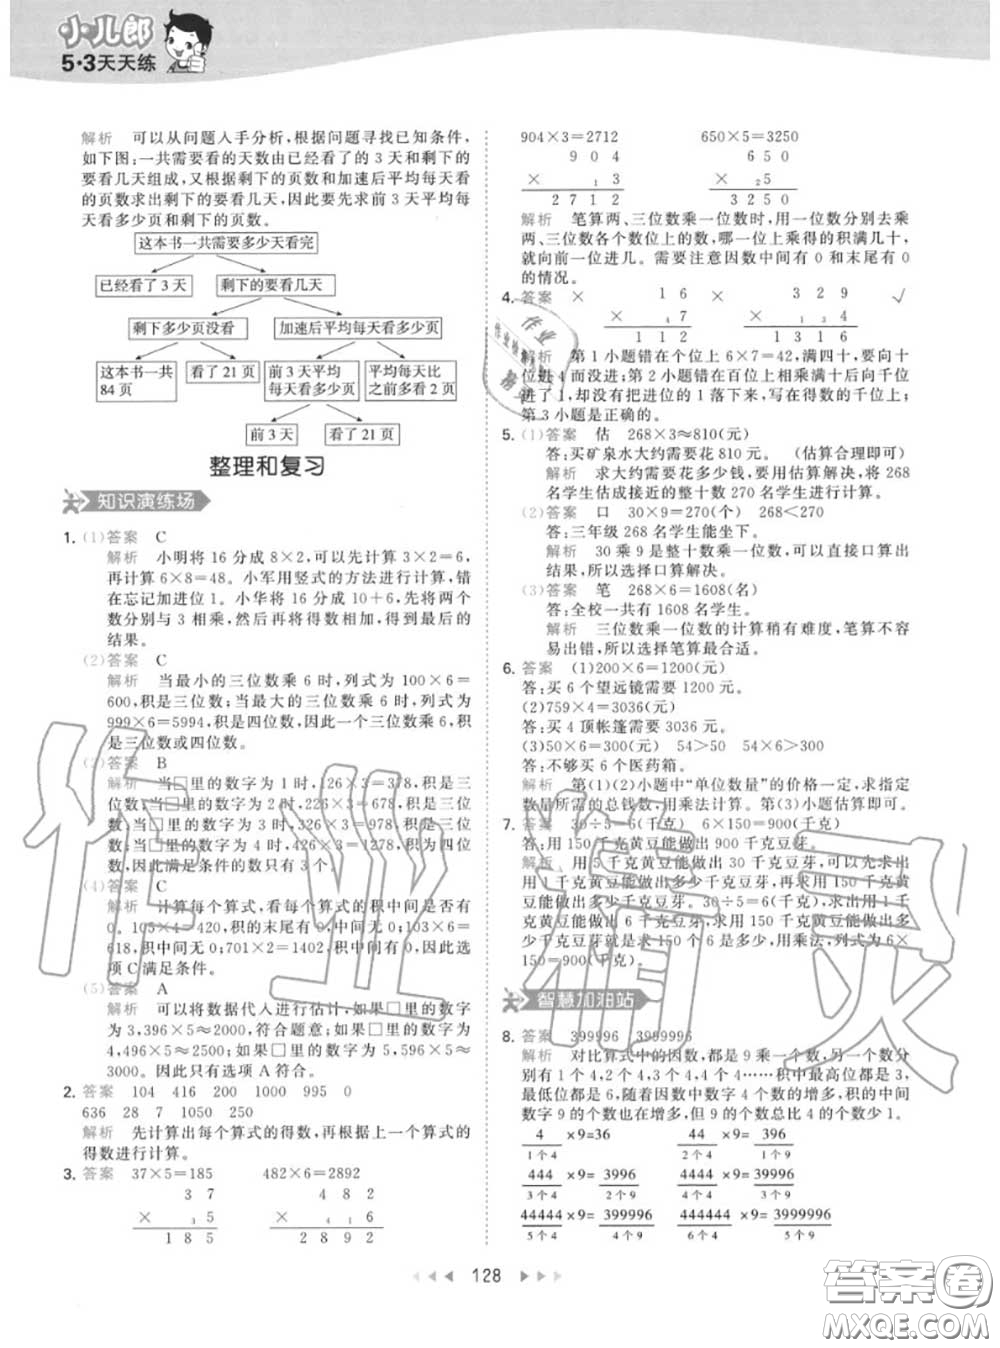 小儿郎
5·3天天练
解析 可以从问题入手分析,根据问题寻找已知条件,
如下图:一共需要看的天数由已经看了的 3 天和剩下的
要看几天组成,又根据剩下的页数和加速后平均每天看
的页数求出剩下的要看几天,因此要先求前 3 天平均每
天看多少页和剩下的页数。
这本书一共需要多少天看完
已经看了 3 天 剩下的要看几天
剩下多少页没看 加速后平均每天看多少页
这本书一共 84 页 看了 21 页 前 3 天平均每天看多少页 平均每天比之前多看 2 页
前 3 天 看了 21 页
整理和复习
知识演练场
1. (1)答案 C
解析 小明将 16 分成 8×2,可以先计算 3×2=6,
再计算 6×8=48。小军用竖式的方法进行计算,错
在忘记加进位 1。小华将 16 分成 10+6,先将两个
数分别与 3 相乘,然后再将得数相加,得到最后的
结果。
(2)答案 C
解析 当最小的三位数乘 6 时,列式为 100×6=
600,积是三位数;当最大的三位数乘 6 时,列式为
999×6=5994,积是四位数,因此一个三位数乘 6,积
是三位数或四位数。
(3)答案 B
解析 当□里的数字为 1 时,126×3=378,积是三
位数;当□里的数字为 2 时,226×3=678,积是三位
数;当□里的数字为 3 时,326×3=978,积是三位
数;当□里的数字为 4 时,426×3=1278,积为四位
数,因此满足条件的数只有 3 个。
(4)答案 C
解析 计算每个算式,看每个算式的积中间是否有
0。105×4=420,积的末尾有 0,中间无 0;103×6=
618,积中间无 0;701×2=1402,积中间有 0,因此选
项 C 满足条件。
(5)答案 A
解析 可以将数据代入进行估计,如果□里的数字
为 3,396×5≈2000,符合题意;如果□里的数字为
4,496×5≈2500;如果□里的数字为 5,596×5≈
3000。因此只有选项 A 符合。
2. 答案 104 416 200 1000 995 0
636 28 7 1050 250
解析 先计算出每个算式的得数,再根据上一个算式的
得数进行计算。
3. 答案 37×5=185 482×6=2892
3 7 4 8 2
× 3 5 × 4 1 6
1 8 5 2 8 9 2
904×3=2712 650×5=3250
9 0 4 6 5 0
× 1 3 × 2 5
2 7 1 2 3 2 5 0
解析 笔算两、三位数乘一位数时,用一位数分别去乘
两、三位数各个数位上的数,哪一位上乘得的积满几十,
就向前一位进几。需要注意因数中间有 0 和末尾有 0
的情况。
4. 答案 × 1 6 × 3 2 9 √
× 4 7 × 1 3 4
1 1 2 1 3 1 6
解析 第 1 小题错在个位上 6×7=42,满四十,要向十
位进 4 而没进;第 2 小题错在百位上相乘积满十向千位
进了 1,却没有把进位的 1 落下来,写在得数的千位上;
第 3 小题是正确的。
5. (1)答案 估 268×3≈810(元)
答:买矿泉水大约需要花 810 元。 (估算合理即可)
解析 求大约需要花多少钱,要用估算解决,将 268
名学生估成接近的整十数 270 名学生进行计算。
(2)答案 口 30×9=270(个) 268<270
答:三年级 268 名学生能坐下。
解析 30 乘 9 是整十数乘一位数,可以直接口算出
结果,所以选择口算解决。
(3)答案 笔 268×6=1608(名)
答:全校一共有 1608 名学生。
解析 三位数乘一位数的计算稍有难度,笔算不容
易出错,所以选择笔算最合适。
6. 答案 (1)200×6=1200(元)
答:买 6 个望远镜需要 1200 元。
(2)759×4=3036(元)
答:买 4 顶帐篷需要 3036 元。
(3)50×6=300(元) 54>50 54×6>300
答:不够买 6 个医药箱。
解析 第(1)(2)小题中“单位数量”的价格一定,求指定
数量所需的总钱数,用乘法计算。第(3)小题估算即可。
7. 答案 30÷5=6(千克) 6×150=900(千克)
答:用 150 千克黄豆能做出 900 千克豆芽。
解析 用 5 千克黄豆能做出 30 千克豆芽,可以先求出
用 1 千克黄豆能做出多少千克豆芽,再来求用 150 千克
黄豆能做出多少千克豆芽。30÷5=6(千克),求出用 1 千
克黄豆能做出 6 千克豆芽,求用 150 千克黄豆能做出多
少千克豆芽就是求 150 个 6 是多少,用乘法,列式为 6×
150=900(千克)。
智慧加油站
8. 答案 399996 3999996
解析 对比算式中的因数,都是 9 乘一个数,另一个数分
别有 1 个 4,2 个 4,3 个 4,4 个 4……积的最高位都是 3,
最低位都是 6,随着因数中数字 4 个数的增多,积的中间
数字 9 的个数也在增多,但 9 的个数总比 4 的个数少 1。
4 ×9=36 44 ×9= 396
1 个 4 2 个 4 1 个 9
444 ×9= 3996 4444 ×9= 39996
3 个 4 2 个 9 4 个 4 3 个 9
44444 ×9= 399996 444444 ×9= 3999996
5 个 4 4 个 9 6 个 4 5 个 9
128
作业精灵
答案圈
MXQE.COM